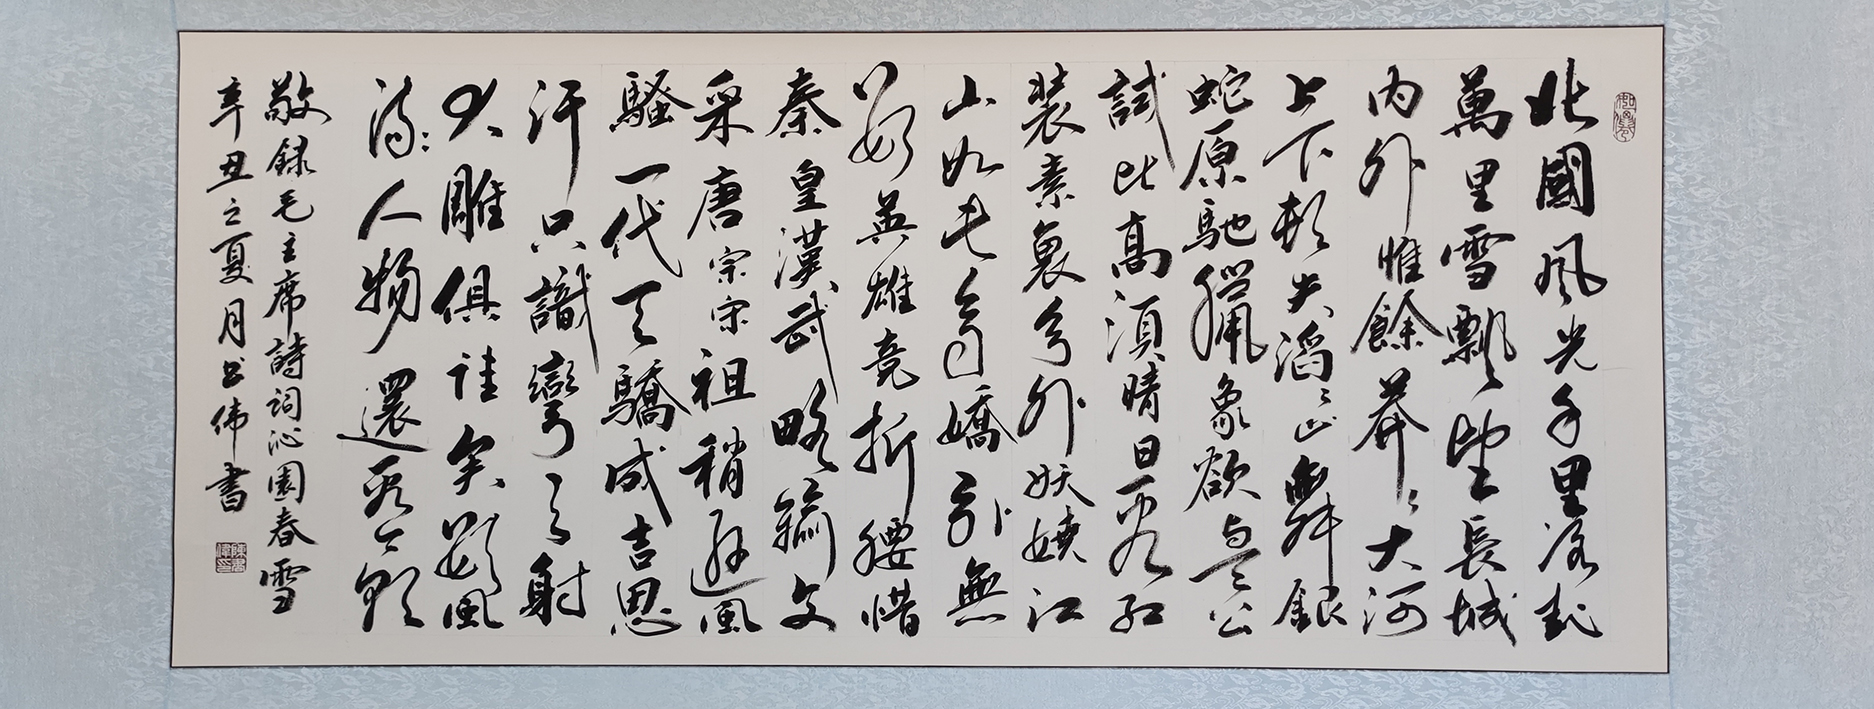 北國風光千里冰封
萬里雪飄望長城
内外惟餘莽々大河
上下頓失滔々山舞銀
蛇原馳臘象欲与天公
試比高須晴日看紅
裝素裹分外妖嬈江
山如此多嬌引無
數英雄竞折腰惜
秦皇漢武略輸文
采唐宗宋祖稍遜風
騷一代天驕成吉思
汗只識彎弓射
大雕俱往矣數風
流人物還看今朝
敬録毛主席詩詞沁園春雪
辛丑之夏月书伟書